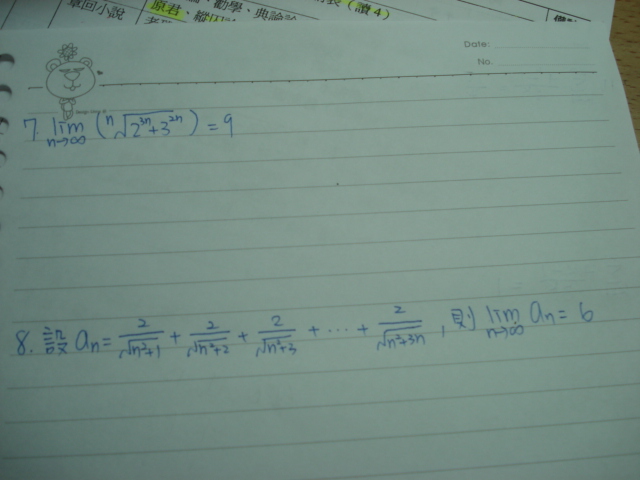 章回小說
原君、縱囚論、勸學、典論論
表(讀4)
Date:
No.
7. lim n→∞ (ⁿ√(2³ⁿ+3²ⁿ)) = 9
8. 設 aₙ = 2/√(n²+1) + 2/√(n²+2) + 2/√(n²+3) + ... + 2/√(n²+3n) , 則 lim n→∞ aₙ = 6